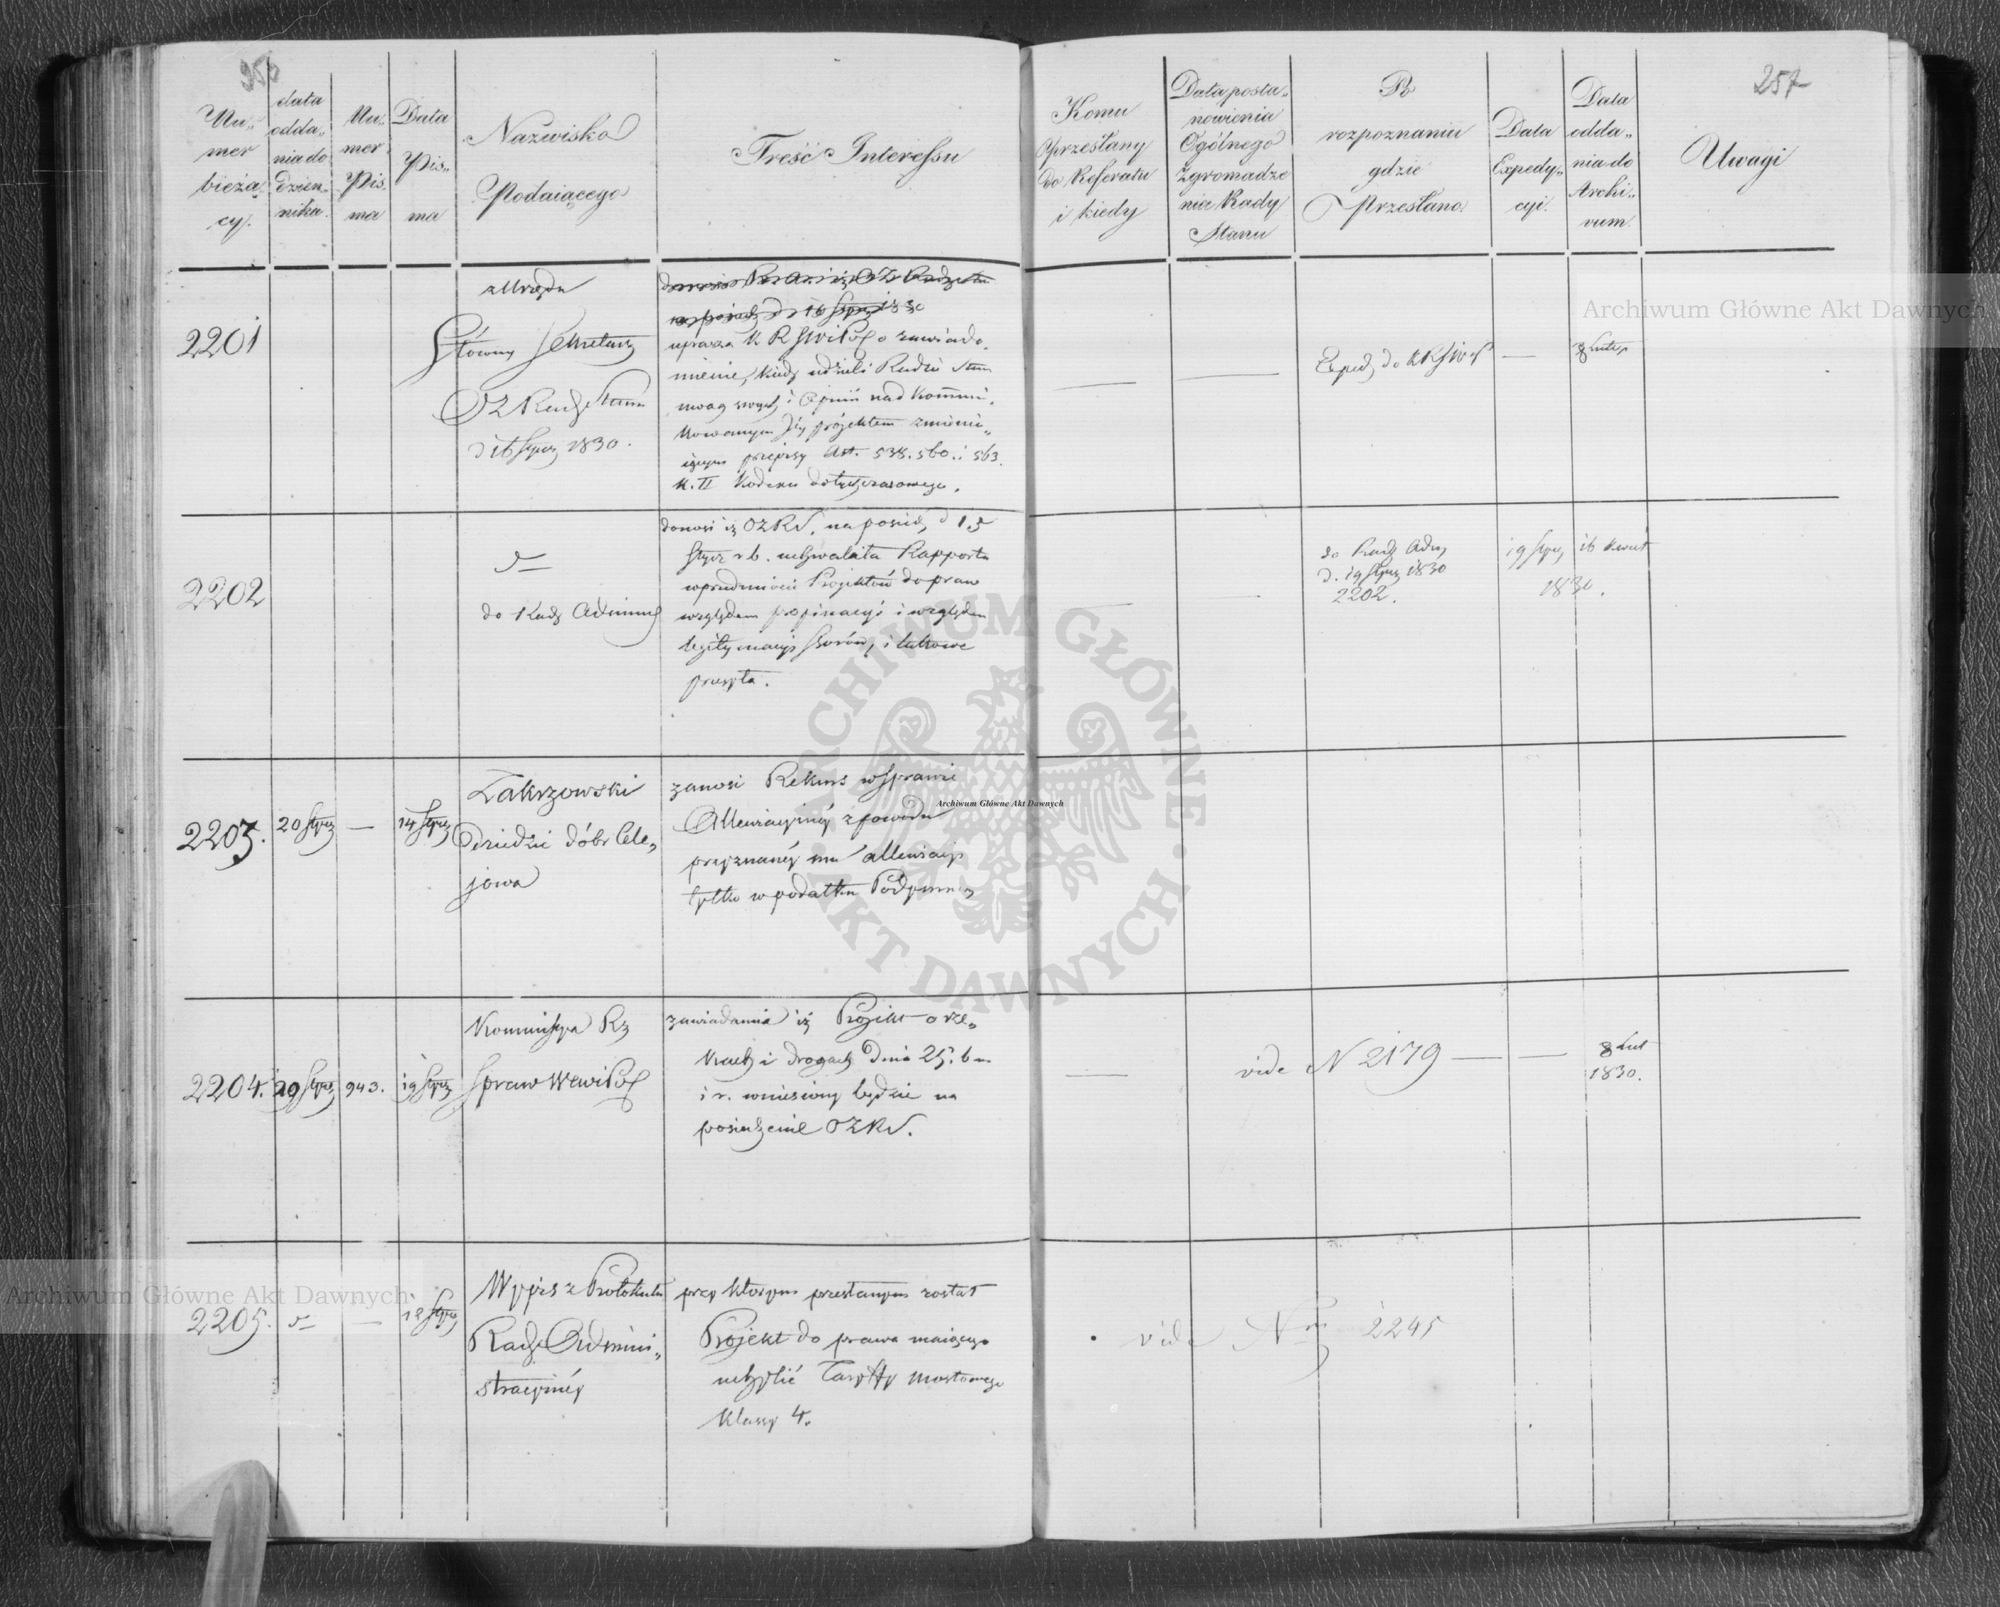 257
Nu-
mer
bieżą
cy.
data
odda-
nia do
dzien-
nika.
Nu-
mer
Pis-
ma
Data
Pis-
ma
Nazwisko
Podaiącego
Treść Interessu
Komu
Przesłany
do Referatu
i kiedy
Data posta-
nowienia
Ogólnego
Zgromadze
nia Rady
Stanu
Po
rozpoznaniu
gdzie
Przesłano
Data
Expedy-
cyi.
Data
odda-
nia do
Archi-
vum
Uwagi
2201
z Urzędu
Główny Sekretarz
OZ Rady Stanu
d 16 Stycz 1830.
uprasza K R S W i Pol o zawiado-
mienie, kiedy udzieli Radzie Stanu
uwag swych i Opinii nad kommuni-
kowanym Jey projektem zmieni-
iącym przepisy Art. 538. 560. i 563.
K. II Kodexu dotychczasowego.
Exped do K R S W i P —
2202
do Rady Adminis
donosi iż OZRS. na posied, d 15
Stycz r b. uchwaliła Rapporta
w przedmiocie Projektów do praw
względem propinacyi i względem
legitymacyi Sporów, i takowe
przesyła.
do Rady Adm
d. 19 Stycz 1830
2202.
19 Stycz
16 Kwiet
1830.
2203.
20 Stycz
—
14 Stycz
Zakrzowski
Dziedzic dóbr Cele-
jowa
zanosi Rekurs w Sprawie
Allewiacyiney z powodu
przyznaney mu allewiacyi
tylko w podatku Podymnem
2204.
20 Stycz
943.
19 Stycz
Kommissya Rz
Spraw Wew i Pol
zawiadamia iż Projekt o rze-
kach i drogach dnia 25. b m
i r. wniesiony będzie na
posiedzenie OZRS.
vide N 2179 — —
8 Lut
1830.
2205.
—
12 Stycz
Wypis z Protokułu
Rady Admini-
stracyiney
przy ktorym przesłanym został
Projekt do prawa maiącego
uchylić Taryffy mostowego
klassy 4.
vide Nr 2245
Archiwum Główne Akt Dawnych
Archiwum Główne Akt Dawnych
Archiwum Główne Akt Dawnych
ARCHIWUM GŁÓWNE · AKT DAWNYCH ·